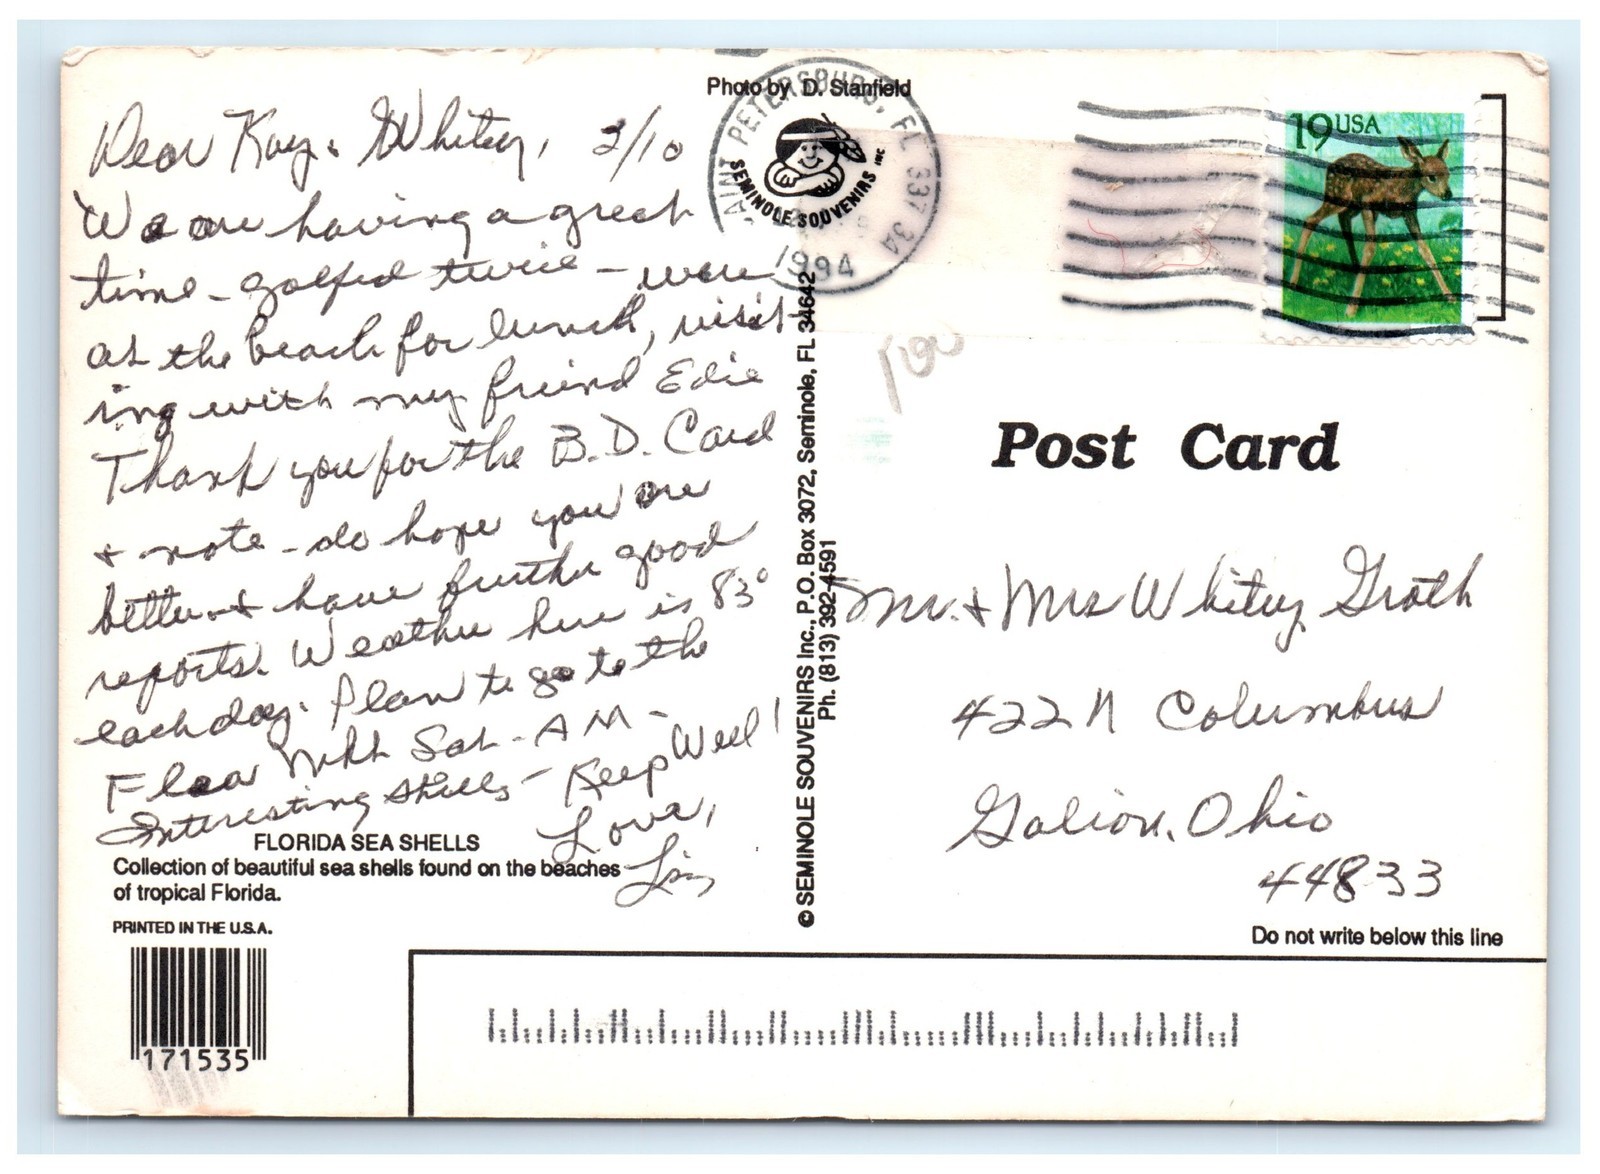 Photo by D. Stanfield
Dear Kay & Whitey, 2/10
We are having a great
time - golfed twice - were
at the beach for lunch, visit-
ing with my friend Edie
Thank you for the B.D. Card
& note - do hope you are
better & have further good
reports. Weather here is 83°
each day. Plan to go to the
Flea Mkt Sat - AM -
Interesting shells - Keep Well!
Love,
Lin
FLORIDA SEA SHELLS
Collection of beautiful sea shells found on the beaches
of tropical Florida.
PRINTED IN THE U.S.A.
171535
© SEMINOLE SOUVENIRS Inc., P.O. Box 3072, Seminole, FL 34642
Ph. (813) 392-4591
SAINT PETERSBURG, FL 337 3A
1994
SEMINOLE SOUVENIRS INC
19USA
Post Card
Mr. & Mrs Whitey Groth
422 N Columbus
Galion, Ohio
44833
Do not write below this line